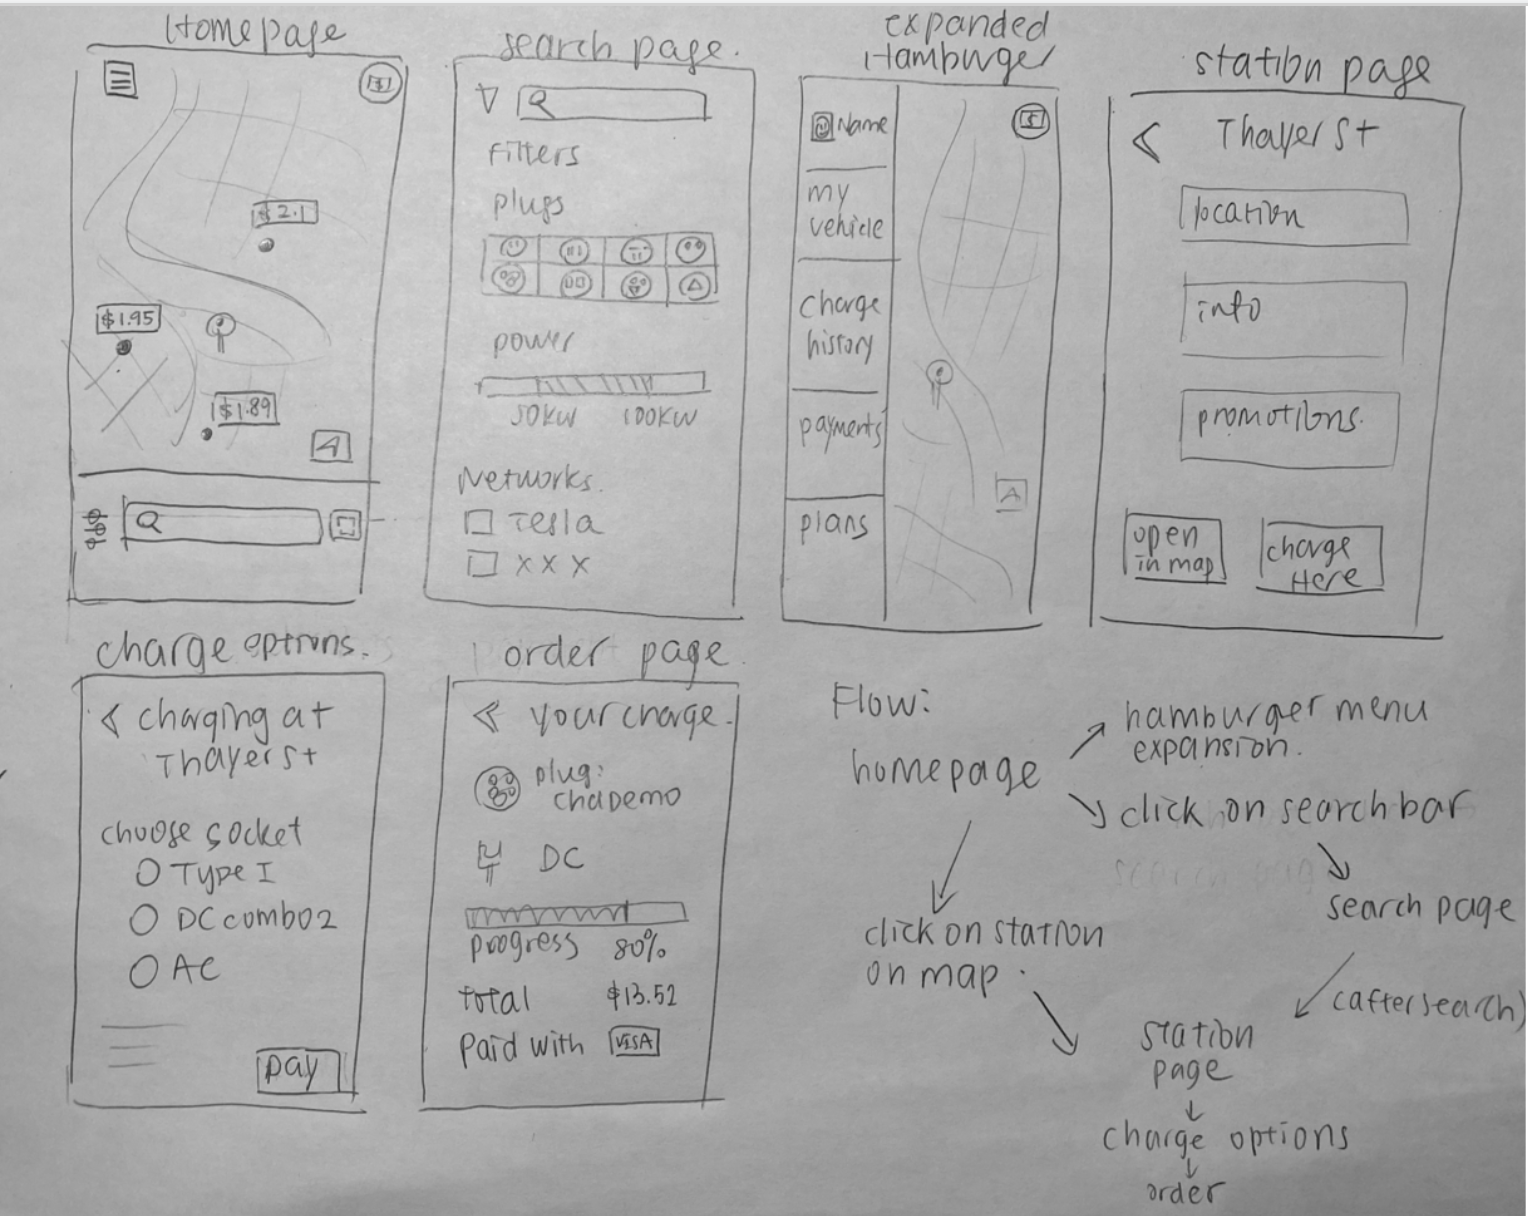 Homepage
$2.1
$1.95
$1.89
search page.
Filters
plugs
power
50KW 100KW
Networks.
Tesla
x x x
expanded
Hamburger
Name
my
vehicle
charge
history
payments
plans
station page
< Thayer St
location
info
promotions.
open
in map
charge
Here
charge options.
< charging at
Thayer St
choose socket
Type I
DC combo2
AC
pay
order page.
< your charge.
plug:
chaDemo
DC
progress 80%
total $13.52
Paid with VISA
Flow:
homepage
hamburger menu
expansion.
click on search bar
search page
(after search)
click on station
on map.
station
page
charge options
order